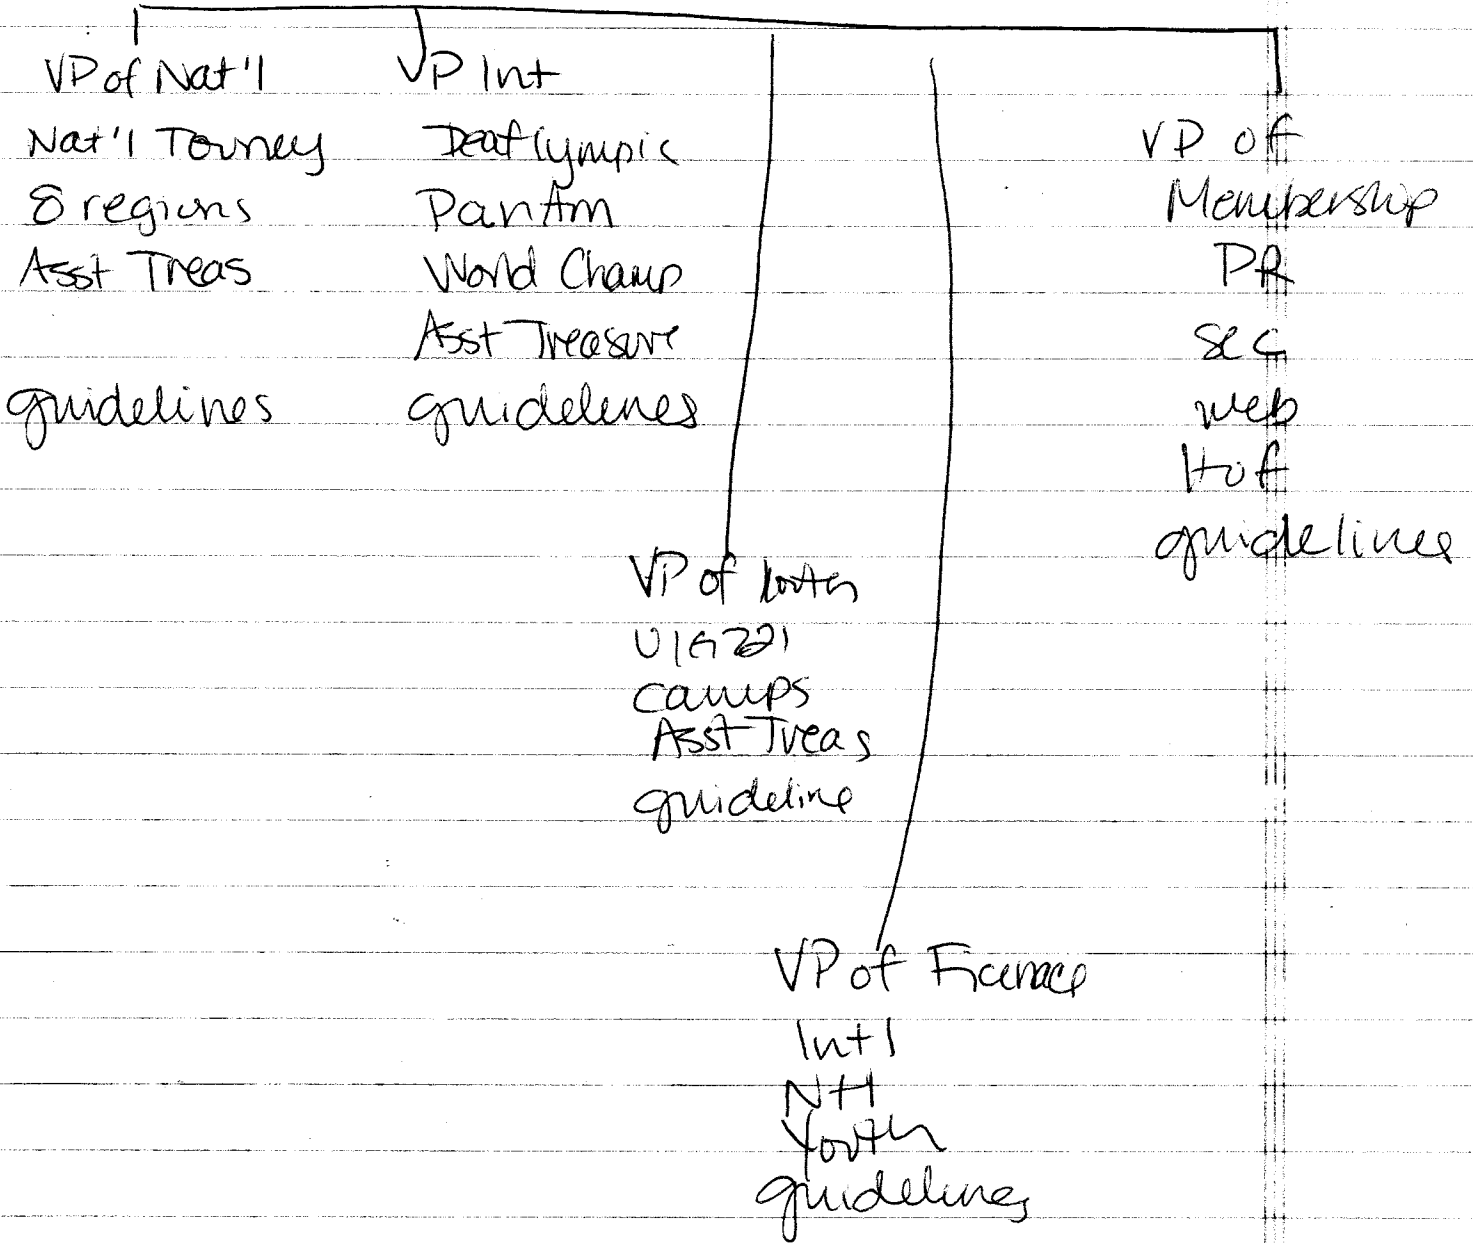 VP of Nat'l
Nat'l Tourney
8 regions
Asst Treas
guidelines
VP Int
Deaflympic
PanAm
World Champ
Asst Treasure
guidelines
VP of Youth
camps
Asst Treas
guideline
VP of Finance
Int'l
Ntl
Youth
guidelines
VP of
Membership
PR
Sec
web
Hof
guidelines